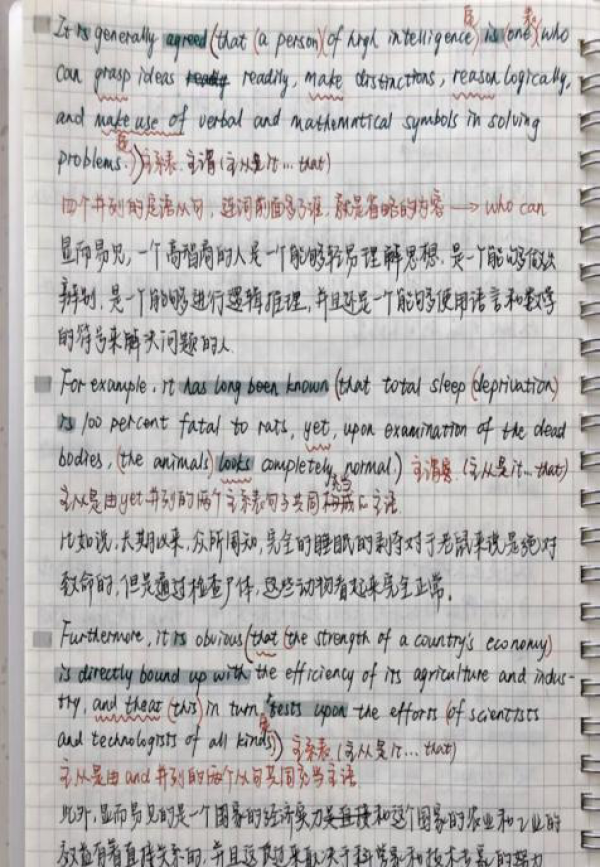 定 表
It is generally agreed (that (a person) (of high intelligence) is (one) (who
can grasp ideas readily readily, make distinctions, reason logically,
and make use of verbal and mathematical symbols in solving
定
problems.)) 主系表. 主谓 (主从是it...that)
四个并列的定语从句, 连词前面省了谁, 就是省略的内容 → who can
显而易见, 一个高智商的人是一个能够轻易理解思想, 是一个能够做出
辨别, 是一个能够进行逻辑推理, 并且还是一个能够使用语言和数学
的符号来解决问题的人.
For example, it has long been known (that total sleep (deprivation)
is 100 percent fatal to rats, yet, upon examination of the dead
bodies, (the animals) looks completely normal.) 主谓 (主从是it...that)
充当
主从是由yet并列的两个主系表句子共同构成 主语
比如说, 长期以来, 众所周知, 完全的睡眠的剥夺对于老鼠来说是绝对
致命的, 但是通过检查尸体, 这些动物看起来完全正常.
Furthermore, it is obvious (that (the strength of a country's economy)
is directly bound up with the efficiency of its agriculture and indus-
try, and that (this) in turn rests upon the efforts (of scientists
and technologists of all kinds.)) 主系表. (主从是it...that)
主从是由and并列的两个从句共同充当主语
此外, 显而易见的是一个国家的经济实力是直接和这个国家的农业和工业的
效益有着直接关系的, 并且这反过来取决于科学家和技术专家的努力